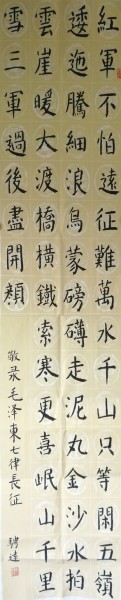 紅軍不怕遠征難萬水千山只等閑五嶺
逶迤騰細浪烏蒙磅礴走泥丸金沙水拍
雲崖暖大渡橋橫鐵索寒更喜岷山千里
雪三軍過後盡開顏
敬录毛泽東七律長征